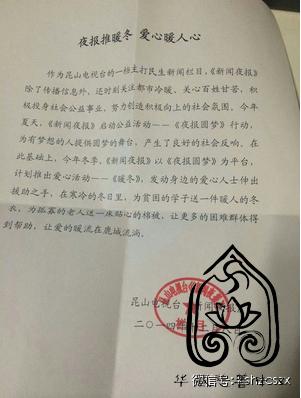 夜报推暖冬 爱心暖人心
作为昆山电视台的一档主打民生新闻栏目,《新闻夜报》
除了传播信息外,还时刻关注都市冷暖、关心百姓甘苦,积
极投身社会公益事业,努力创造积极向上的社会氛围。今年
夏天,《新闻夜报》启动公益活动——《夜报圆梦》行动,
为有梦想的人提供圆梦的舞台,产生了良好的社会反响。在
此基础上,今年冬季,《新闻夜报》以《夜报圆梦》为平台,
计划推出爱心活动——《暖冬》,发动身边的爱心人士伸出
援助之手,在寒冷的冬日里,为贫困的学子送一件暖人的冬
衣,为孤寡的老人送一床贴心的棉被,让更多的困难群体得
到帮助,让爱的暖流在鹿城流淌。
昆山电视台 新闻夜报
二〇一四年
微信号: